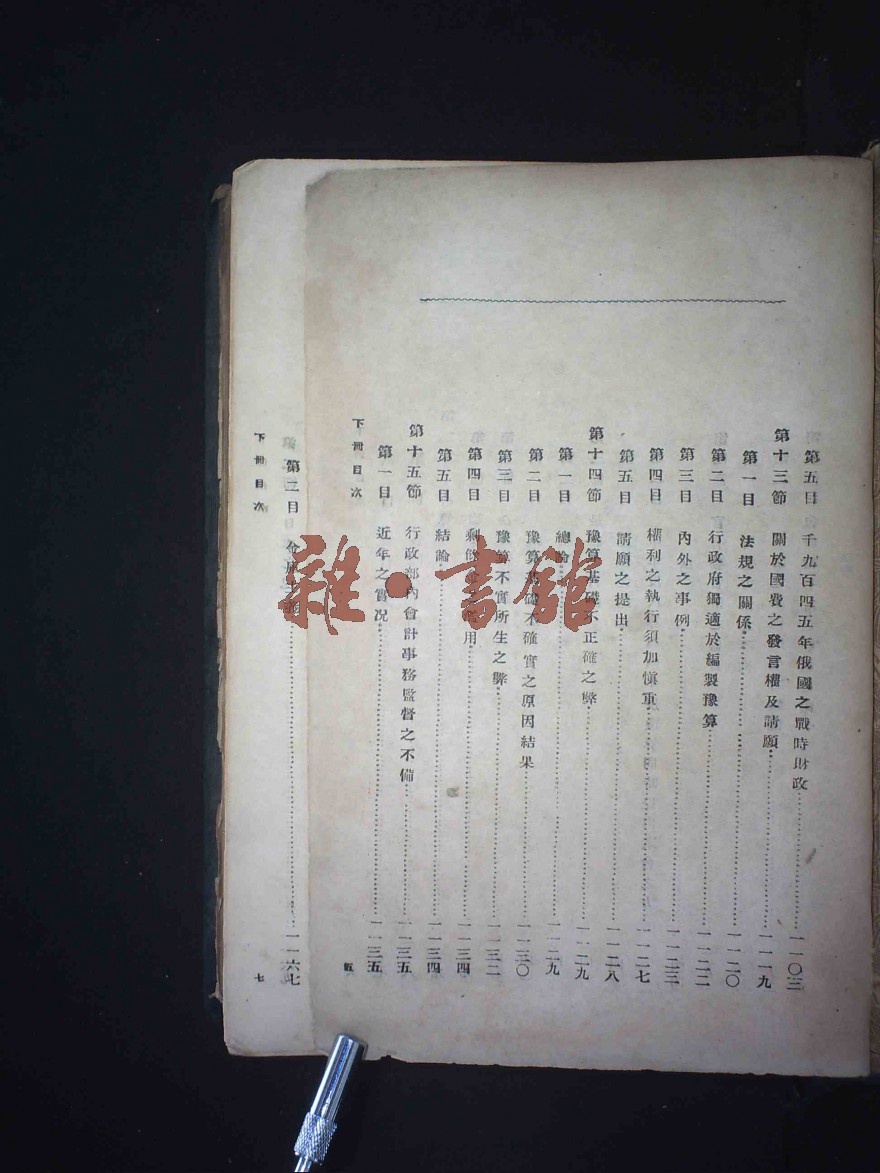 第五目 千九百四五年俄國之戰時財政……一一〇三
第十三節 關於國費之發言權及請願……一一一九
第一目 法規之關係……一一二〇
第二目 行政府獨適於編製豫算……一一二二
第三目 內外之事例……一一二三
第四目 權利之執行須加愼重……一一二七
第五目 請願之提出……一一二八
第十四節 豫算基礎不正確之弊……一一二九
第一目 總論……一一二九
第二目 豫算基礎不確實之原因結果……一一三〇
第三目 豫算不實所生之弊……一一三二
第四目 剩餘用……一一三四
第五目 結論……一一三四
第十五節 行政部內會計事務監督之不備……一一三五
第一目 近年之實况……一一三五
下冊目次
伍
第二目……一一六七
下冊目次
七
雜·書館